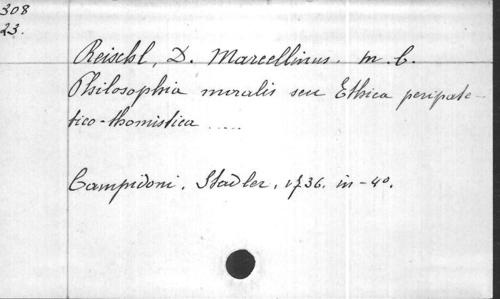 308
23.
Reischl, D. Marcellinus. m. b.
Philosophia moralis seu Ethica peripate-
tico-thomistica .....
Campidoni. Stadler. 1736. in-4o.